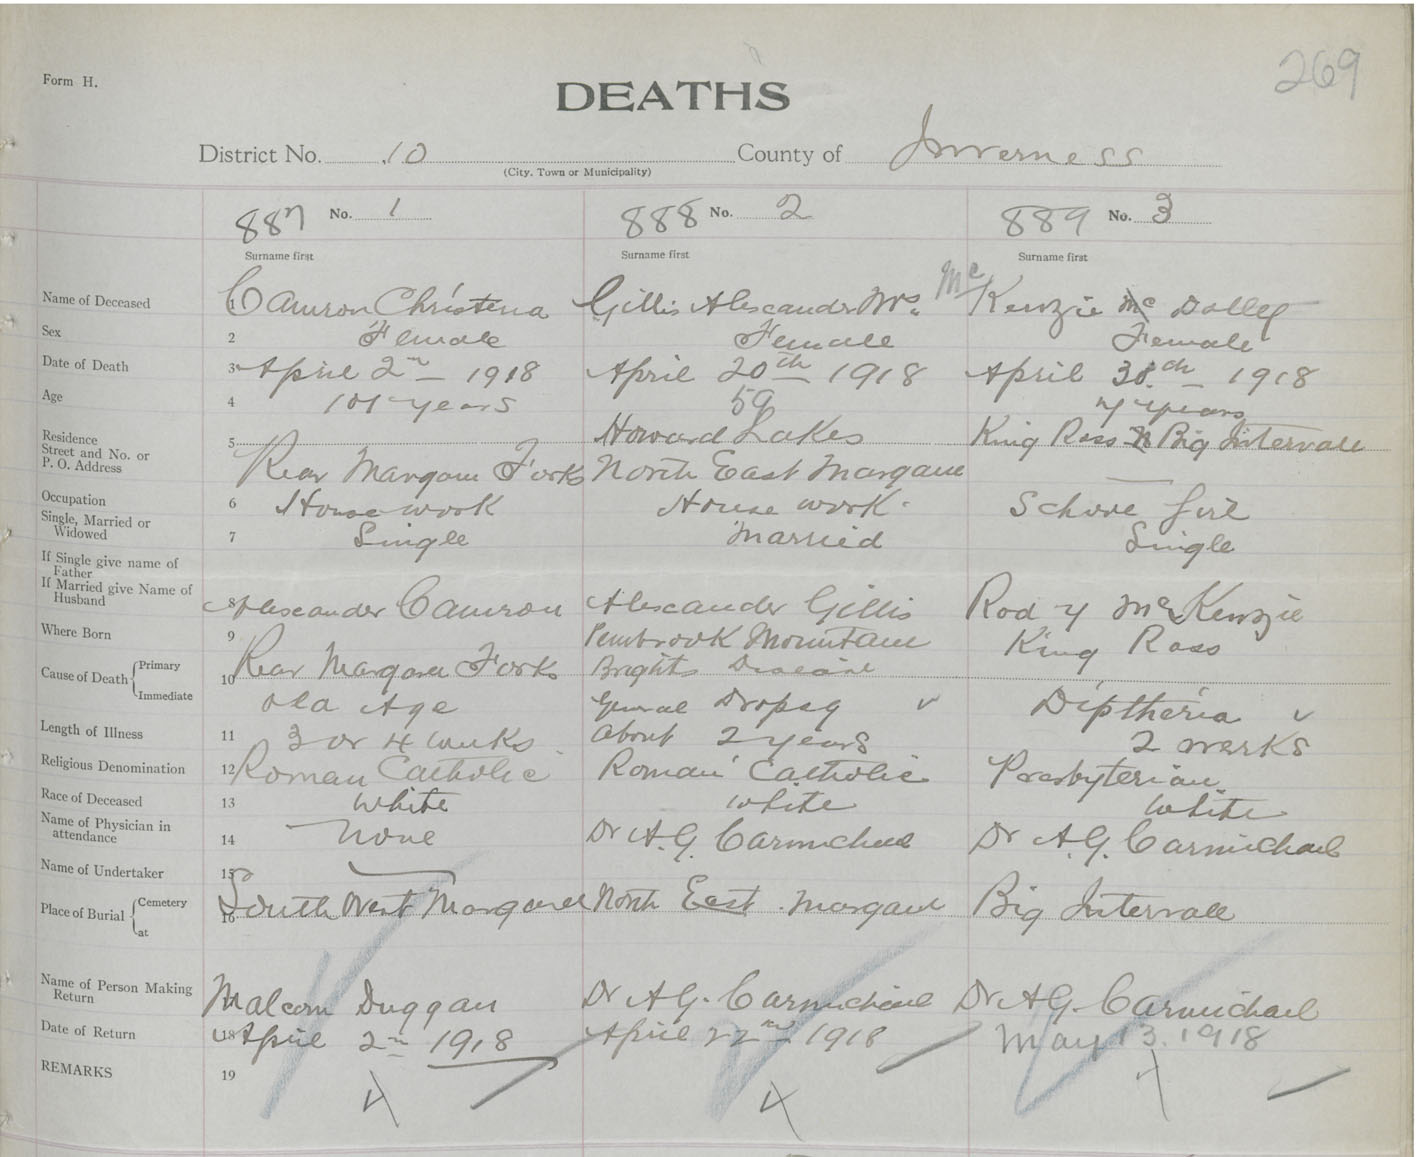 269
Form H.
DEATHS
District No. 10 County of Inverness
(City, Town or Municipality)
887 No. 1 888 No. 2 889 No. 3
Surname first Surname first Surname first
Name of Deceased 1 Camron Christena Gillis Alexander Mrs. Mc Kenzie Mc Dolley
Sex 2 Female Female Female
Date of Death 3 April 2nd 1918 April 20th 1918 April 30th 1918
Age 4 101 years 59 7 years
Residence Howard Lakes King Ross N Big Intervale
Street and No. or 5
P. O. Address Rear Margaree Forks North East Margaree
Occupation 6 House work House work School girl
Single, Married or
Widowed 7 Single Married Single
If Single give name of
Father
If Married give Name of
Husband 8 Alexander Camron Alexander Gillis Rod y McKenzie
Where Born 9 Rear Margaree Forks Pembrook Mountain King Ross
Cause of Death Primary 10 Brights Disease
Immediate Old Age General Dropsy Diptheria
Length of Illness 11 3 or 4 weeks About 2 years 2 weeks
Religious Denomination 12 Roman Catholic Roman Catholic Presbyterian
Race of Deceased 13 White White White
Name of Physician in
attendance 14 None Dr A. G. Carmichael Dr A. G. Carmichael
Name of Undertaker 15
Place of Burial Cemetery 16 South West Margaree North East Margaree Big Intervale
at
Name of Person Making
Return 17 Malcom Duggan Dr A G. Carmichael Dr A G. Carmichael
Date of Return 18 April 2nd 1918 April 22nd 1918 May 13. 1918
REMARKS 19